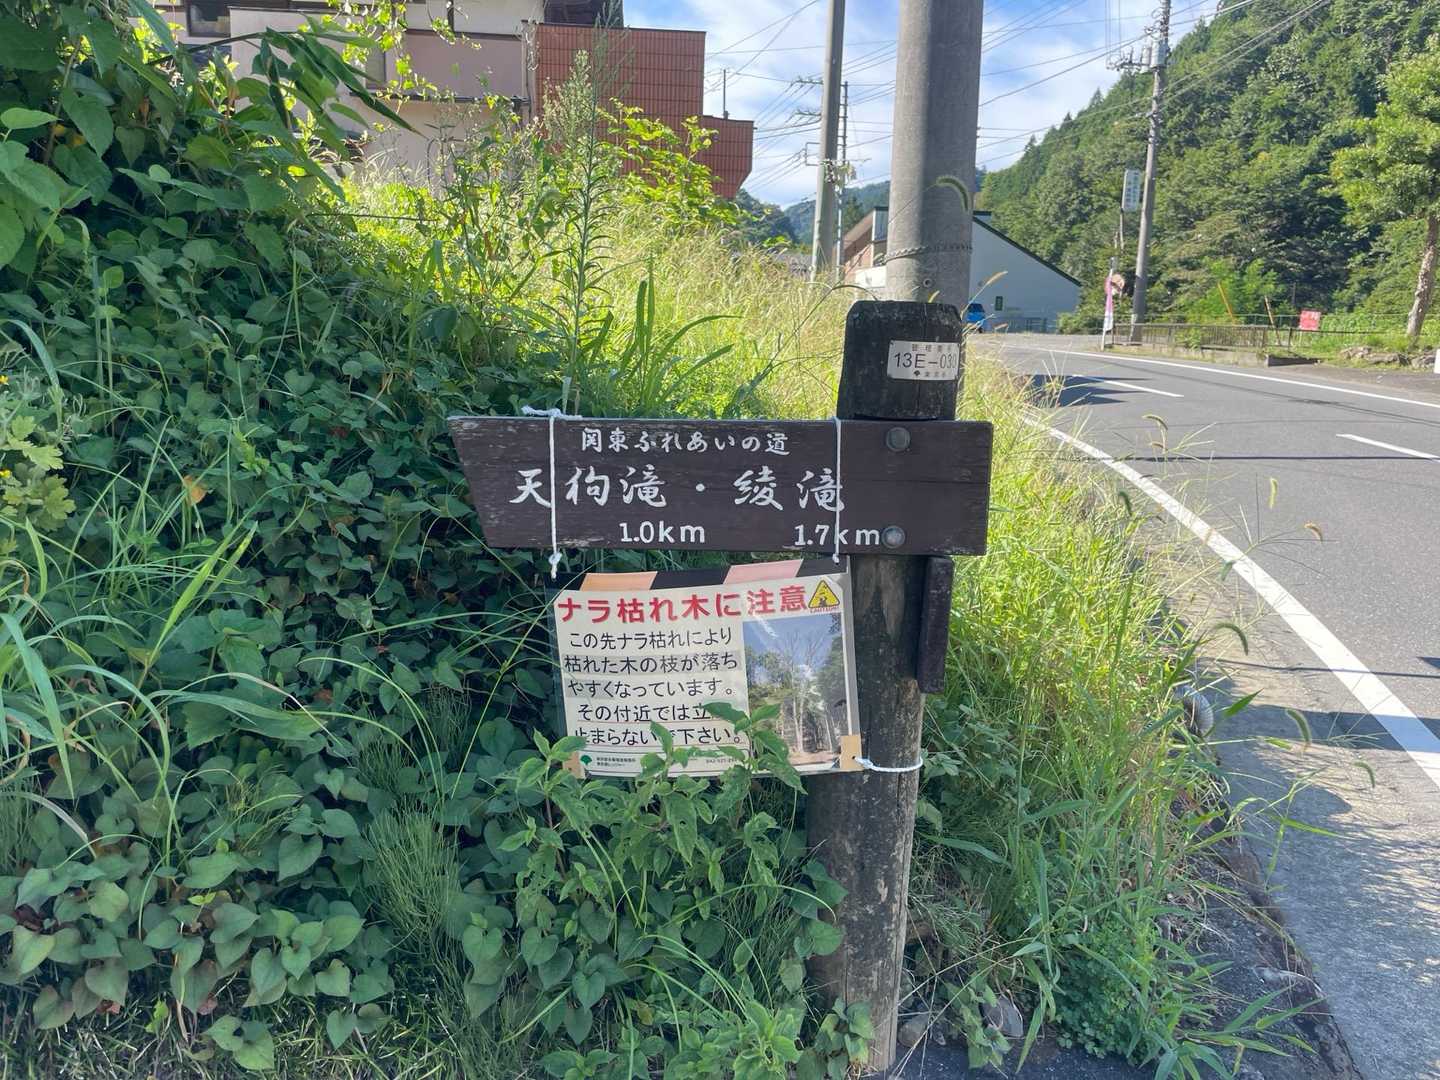 管理番号
13E-030
東京都
関東ふれあいの道
天狗滝・綾滝
1.0km 1.7km
ナラ枯れ木に注意
この先ナラ枯れにより
枯れた木の枝が落ち
やすくなっています。
その付近では立
止まらないで下さい。